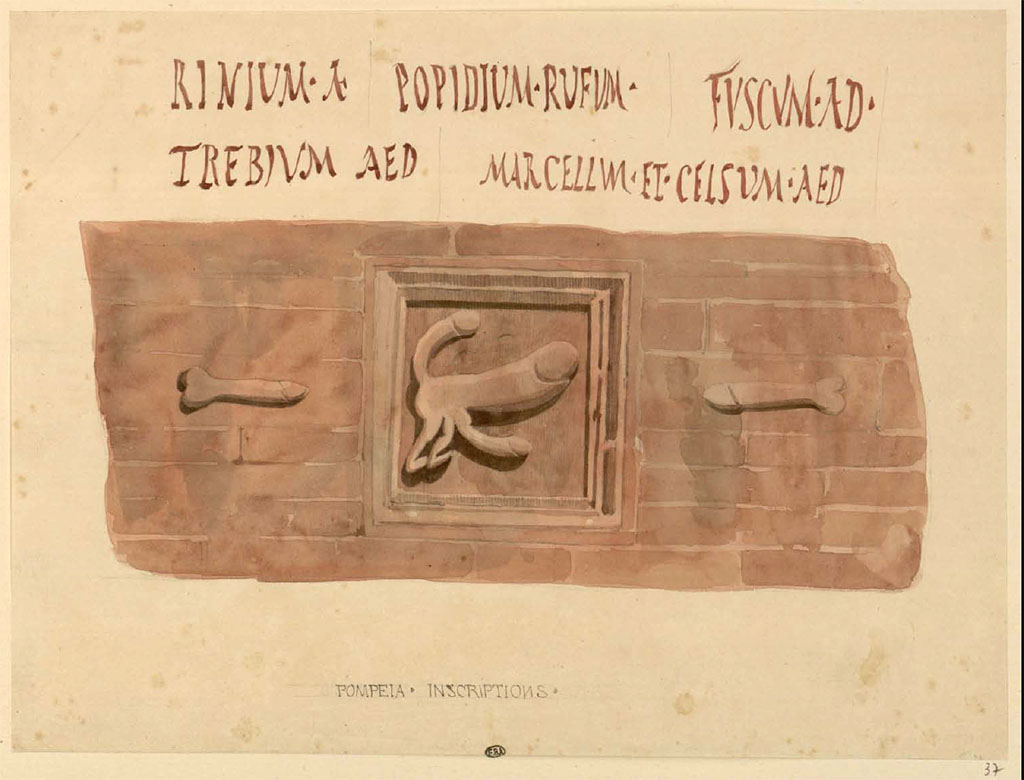 RINIUM· A· POPIDIUM·RUFUM· FVSCVM·AD·
TREBIVM AED MARCELLVM·ET·CELSUM·AED
POMPEIA· INSCRIPTIONS·
37